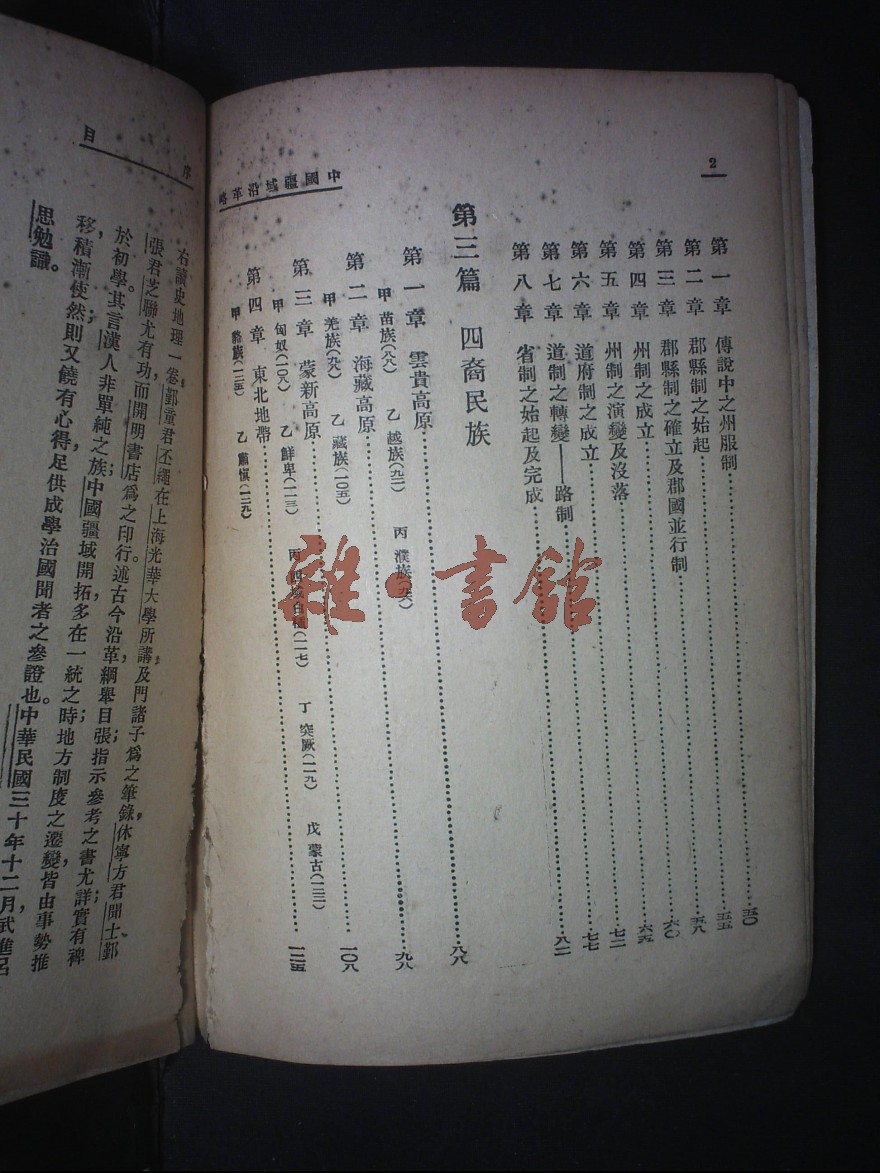 2
中國疆域沿革略
第一章 傳說中之州服制……五〇
第二章 郡縣制之始起……五五
第三章 郡縣制之確立及郡國並行制……五八
第四章 州制之成立……六〇
第五章 州制之演變及沒落……六五
第六章 道府制之成立……七二
第七章 道制之轉變——路制……七七
第八章 省制之始起及完成……八二
第三篇 四裔民族
第一章 雲貴高原……八八
甲 苗族(八八) 乙 越族(九二) 丙 濮族(九六)
第二章 海藏高原……九八
甲 羌族(九八) 乙 藏族(一〇五)
第三章 蒙新高原……一〇八
甲 匈奴(一〇九) 乙 鮮卑(一一三) 丙 西域白種(一一七) 丁 突厥(一一九) 戊 蒙古(一二二)
第四章 東北地帶……一二五
甲 貉族(一二五) 乙 肅慎(一二九)
序目
右讀史地理一卷，鄞童君丕繩在上海光華大學所講，及門諸子爲之筆錄，休寧方君聞士鄞
張君芝聯尤有功，而開明書店爲之印行。述古今沿革，綱舉目張；指示參考之書尤詳實，有裨
於初學。其言漢人非單純之族；中國疆域開拓，多在一統之時；地方制度之遷變，皆由事勢推
移，積漸使然；則又饒有心得，足供成學治國聞者之參證也。中華民國三十年十二月，武進呂
思勉識。
雜·書館